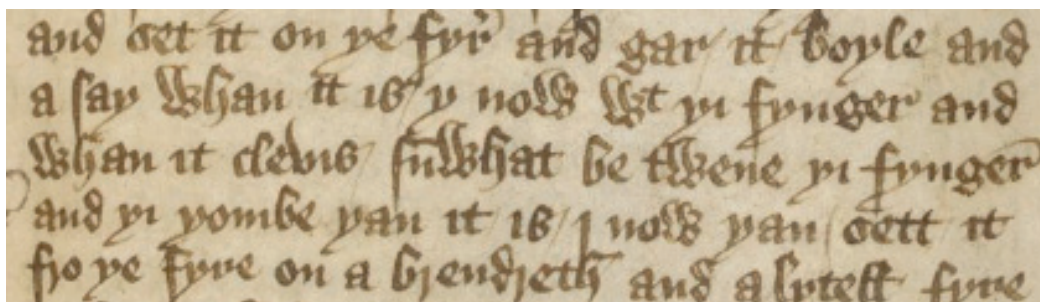 and set it on ye fyr and gar it boyle and
a say whan it is y now wt yi fynger and
whan it clevis sūwhat be twene yi fynger
and yi yombe yan it is / I now yan / sett it
fro ye fyre on a brendreth and a lytell fyre